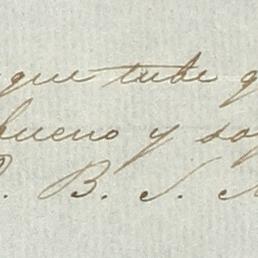 que tube
bueno y soy
B. S. M